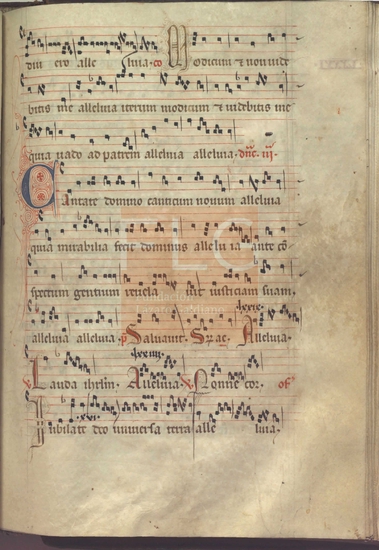 diu ero alle luia · co Modicum et non vide
bitis me alleluia iterum modicum et videbitis me
quia vado ad patrem alleluia alleluia · dnc. iii.
Cantate domino canticum novum alleluia
quia mirabilia fecit dominus alleluia ante con
spectum gentium revela vit iusticiam suam
lxxix
alleluia alleluia. ps Salvavit. Alleluia.
lxxiiii
Lauda ihrlm. Alleluia. Nonne cor. of
xvi.
Iubilate deo universa terra alle luia.